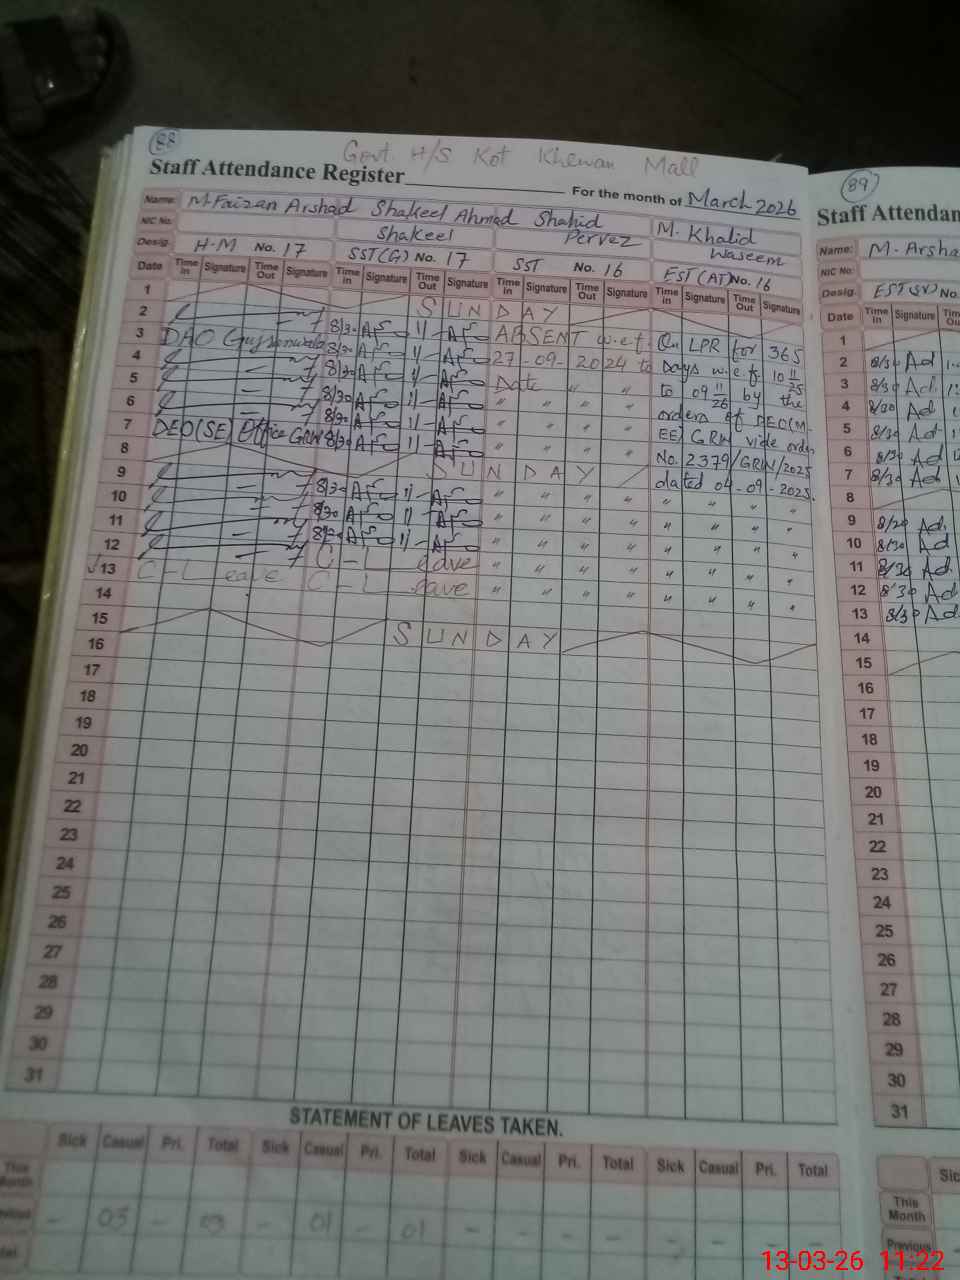 88
Govt. H/S Kot Khewan Mall
Staff Attendance Register
For the month of March 2026
Name: M Faizan Arshad Shakeel Ahmad Shakeel Shahid Pervez M. Khalid Waseem
NIC No.
Desig. H-M No. 17 SST(G) No. 17 SST No. 16 EST(AT) No. 16
Date Time In Signature Time Out Signature Time In Signature Time Out Signature Time In Signature Time Out Signature Time In Signature Time Out Signature
1 SUNDAY
2 8/30 11 ABSENT w.e.f. On LPR for 365
3 DAO 8/30 11 27-09-2024 to Days w.e.f. 10 11/25
4 8/30 11 Date " " to 09 11/26 by the
5 8/30 11 " " " " orders of DEO(M-
6 8/30 11 " " " " EE) GRW vide order
7 DEO(SE) Office GRW 8/30 11 " " " " No. 2379/GRW/2025
8 SUNDAY dated 04-09-2025.
9 8/30 11 " " " " " " " "
10 8/30 11 " " " " " " " "
11 8/30 11 " " " " " " " "
12 C-Leave " " " " " " " "
13 C-Leave C-Leave " " " " " " " "
14
15 SUNDAY
16
17
18
19
20
21
22
23
24
25
26
27
28
29
30
31
STATEMENT OF LEAVES TAKEN.
Sick Casual Pri. Total Sick Casual Pri. Total Sick Casual Pri. Total Sick Casual Pri. Total
This Month
- 03 - 03 - 01 - 01 - - - - - - - -
89
Staff Attendan
Name: M. Arsha
NIC No:
Desig: EST(SV) No.
Date Time In Signature
1
2 8/30 Ad
3 8/30 Ad
4 8/30 Ad
5 8/30 Ad
6 8/30 Ad
7 8/30 Ad
8
9 8/30 Ad
10 8/30 Ad
11 8/30 Ad
12 8/30 Ad
13 8/30 Ad
14
15
16
17
18
19
20
21
22
23
24
25
26
27
28
29
30
31
This Month
Previous
13-03-26 11:22